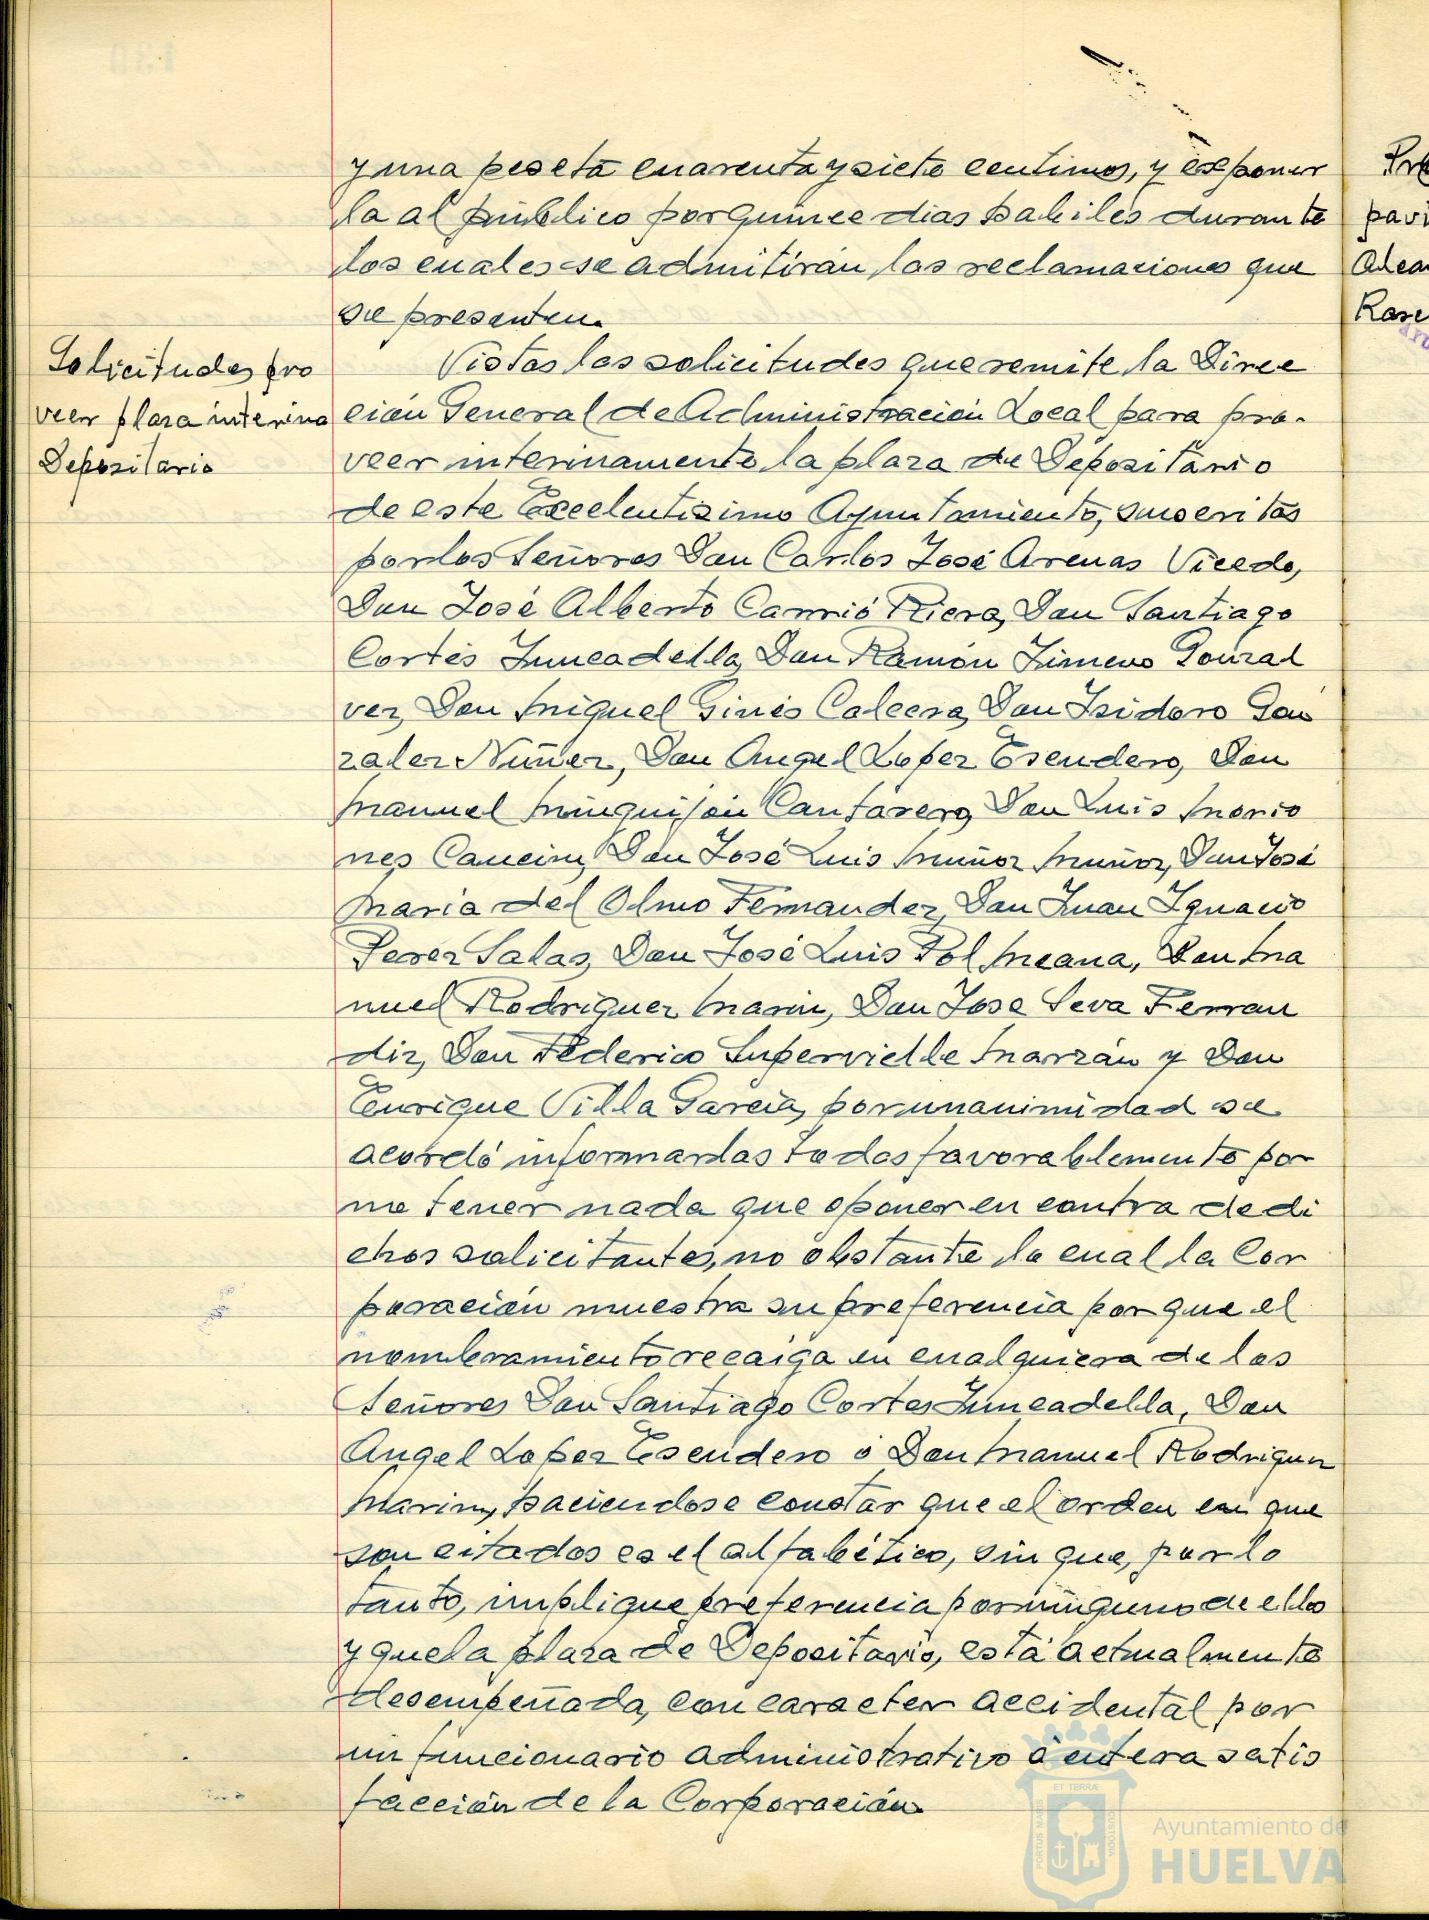 y una peseta cuarenta y siete centimos, y exponer
la al público por quince dias habiles durante
los cuales se admitirán las reclamaciones que
se presenten.
Solicitudes pro
veer plaza interina
Depositario
Vistas las solicitudes que remite la Direc
ción General de Administración Local para pro-
veer interinamente la plaza de Depositario
de este Excelentisimo Ayuntamiento, suscritas
por los Señores Don Carlos José Arenas Vicedo,
Don José Alberto Carrió Riera, Don Santiago
Cortés Juncadella, Don Ramón Jimeno Gonzal
vez, Don Miguel Ginés Calcera, Don Isidoro Gon
zalez Nuñez, Don Angel Lopez Escudero, Don
Manuel Minguijón Cantarero, Don Luis Morio
nes Cancin, Don José Luis Muñoz Muñoz, Don José
Maria del Olmo Fernandez, Don Juan Ignacio
Perez Salas, Don José Luis Pol Meana, Don Ma
nuel Rodriguez Marin, Don Jose Seva Ferran
diz, Don Federico Supervielle Marzán y Don
Enrique Villa Garcia, por unanimidad se
acordó informarlas todas favorablemente por
no tener nada que oponer en contra de di
chos solicitantes, no obstante lo cual la Cor
poración muestra su preferencia por que el
nombramiento recaiga en cualquiera de los
Señores Don Santiago Cortes Juncadella, Don
Angel Lopez Escudero ó Don Manuel Rodriguez
Marin, haciendose constar que el orden en que
son citados es el alfabético, sin que, por lo
tanto, implique preferencia por ninguno de ellos
y que la plaza de Depositario, está actualmente
desempeñada, con caracter accidental por
un funcionario administrativo á entera satis
facción de la Corporación.
ET TERRÆ
PORTUS MARIS
CUSTODIA
Ayuntamiento de
HUELVA